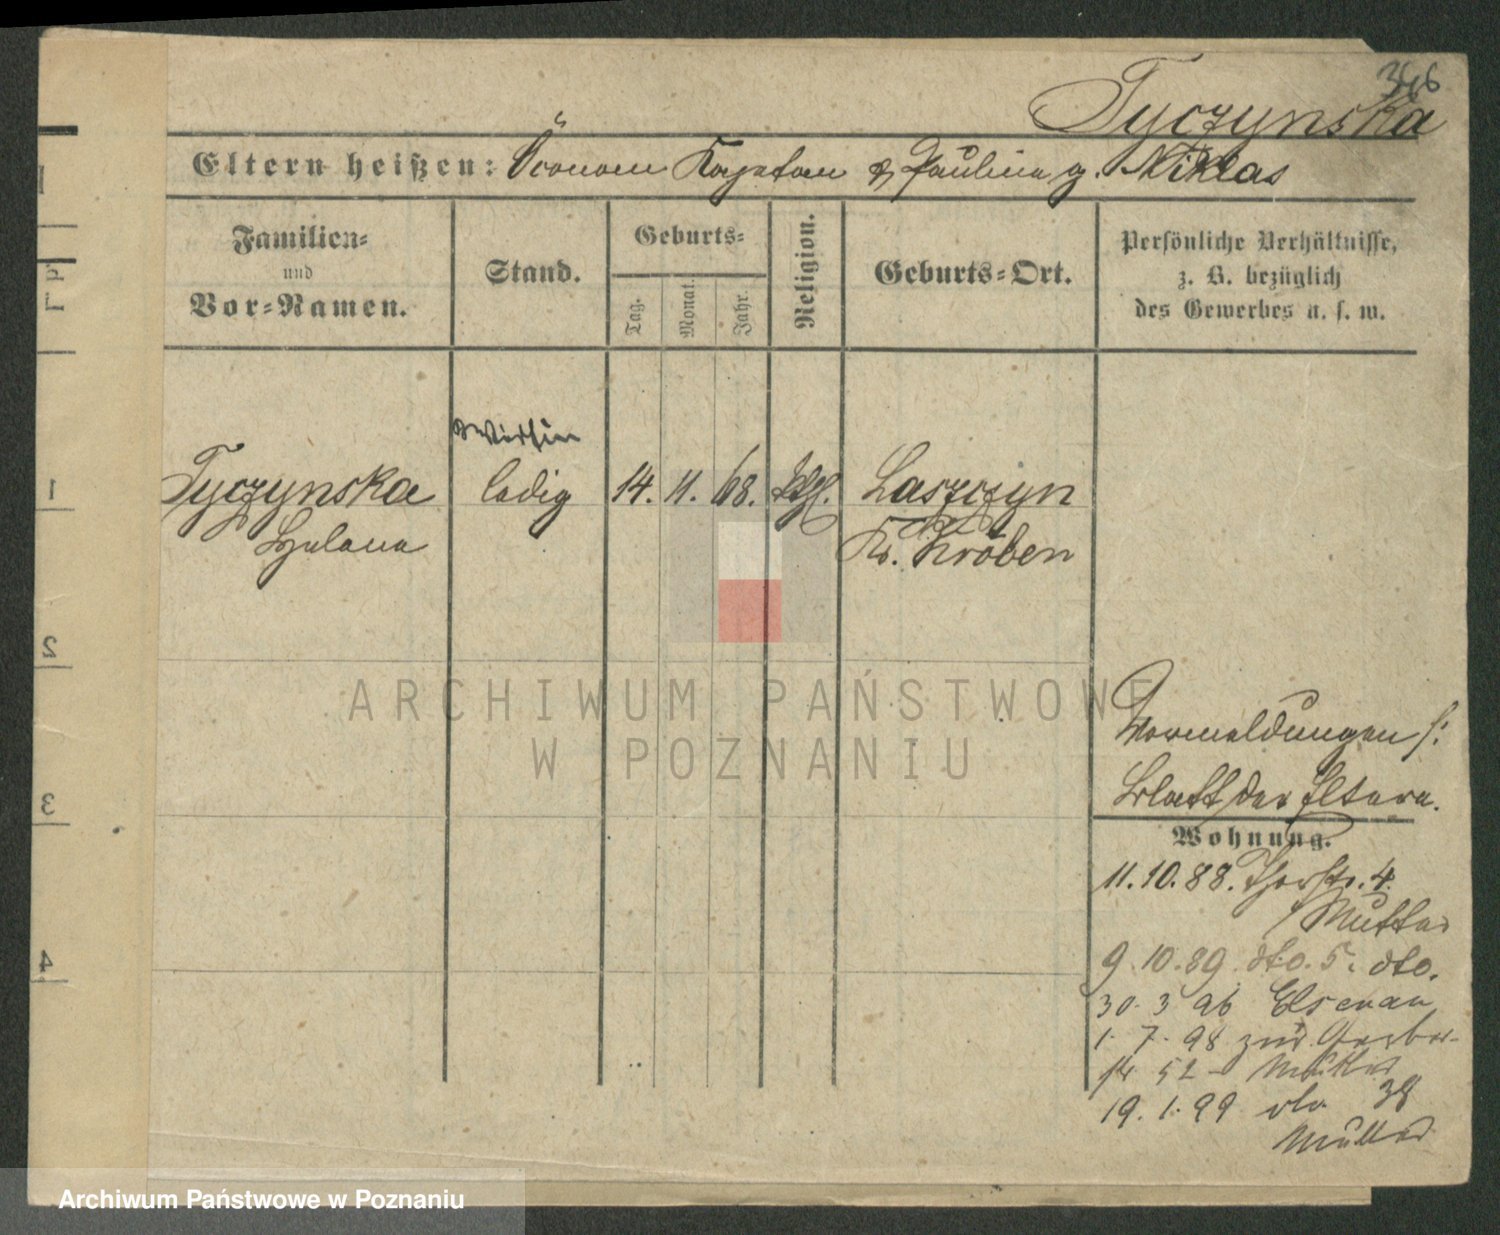 Tyczynska
Eltern heißen: Öconom Kajetan & Paulina g. Niklas
Familien-
und
Vor-Namen.
Stand.
Geburts-
Tag.
Monat.
Jahr.
Religion.
Geburts-Ort.
Persönliche Verhältnisse,
z. B. bezüglich
des Gewerbes u. s. w.
Wirthin
Tyczynska ledig 14. 11. 68. Kthl. Laszczyn
Helena Kr. Kröben
1
2
3
4
Vormeldungen s:
Blatt der Eltern.
Wohnung.
11.10.88. Thorstr. 4.
Mutter
9.10.89. dto. 5. dto.
30. 3 96 Elsenau
1. 7. 98 zur. Gerber-
str 52 - Mutter
19. 1. 99 dto 38
Mutter
ARCHIWUM PAŃSTWOWE
W POZNANIU
Archiwum Państwowe w Poznaniu